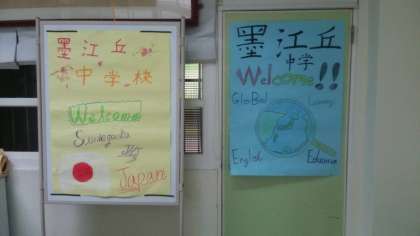 墨江丘
中学校
Welcome
Japan
墨江丘
中学
Welcome!!
Global
Learning
English
Education